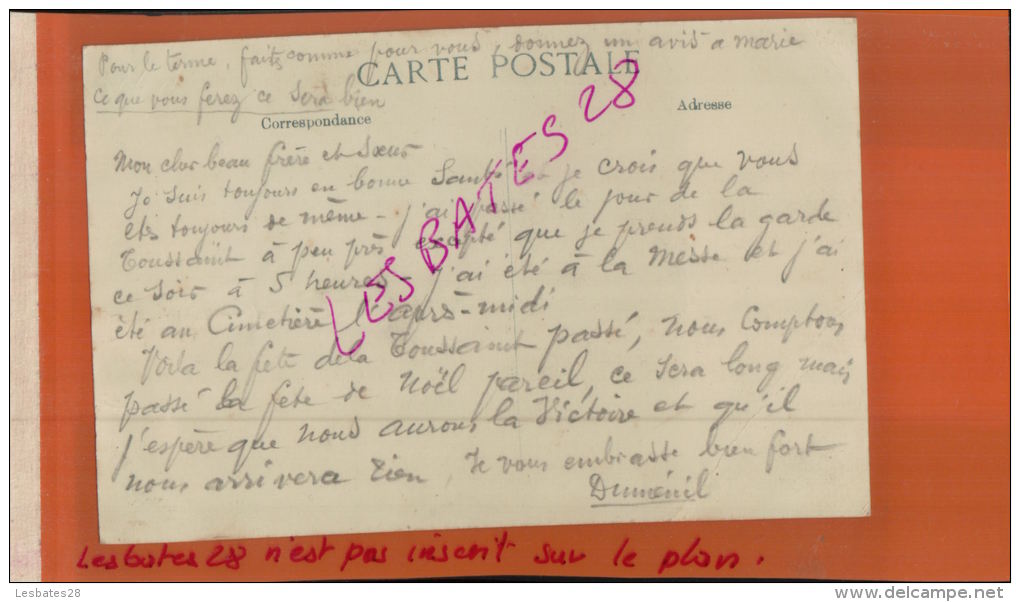 Pour le terme, faites comme pour vous, donnez un avis a marie
ce que vous ferez ce sera bien
CARTE POSTALE
Correspondance
Adresse
Mon cher beau frère et Sœur
Je suis toujours en bonne Santé je crois que vous
êtes toujours de même - j'ai passé le jour de la
Toussaint à peu près excepté que je prends la garde
ce soir à 5 heures - j'ai été à la Messe et j'ai
été au Cimetière l'après-midi
Voila la fête de la Toussaint passé, nous comptons
passé la fête de Noël pareil, ce sera long mais
j'espère que nous aurons la Victoire et qu'il
nous arrivera rien, Je vous embrasse bien fort
Duménil
LES BATES 28
Lesbates 28 n'est pas inscrit sur le plan.
©Lesbates28
www.delcampe.net